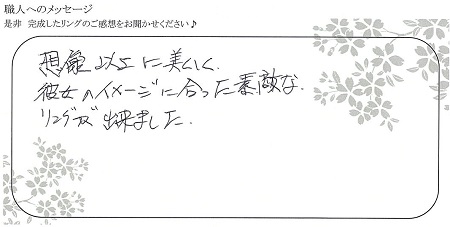 職人へのメッセージ
是非 完成したリングのご感想をお聞かせください♪
想像以上に美しく、
彼女のイメージに合った素敵な、
リングが出来ました。